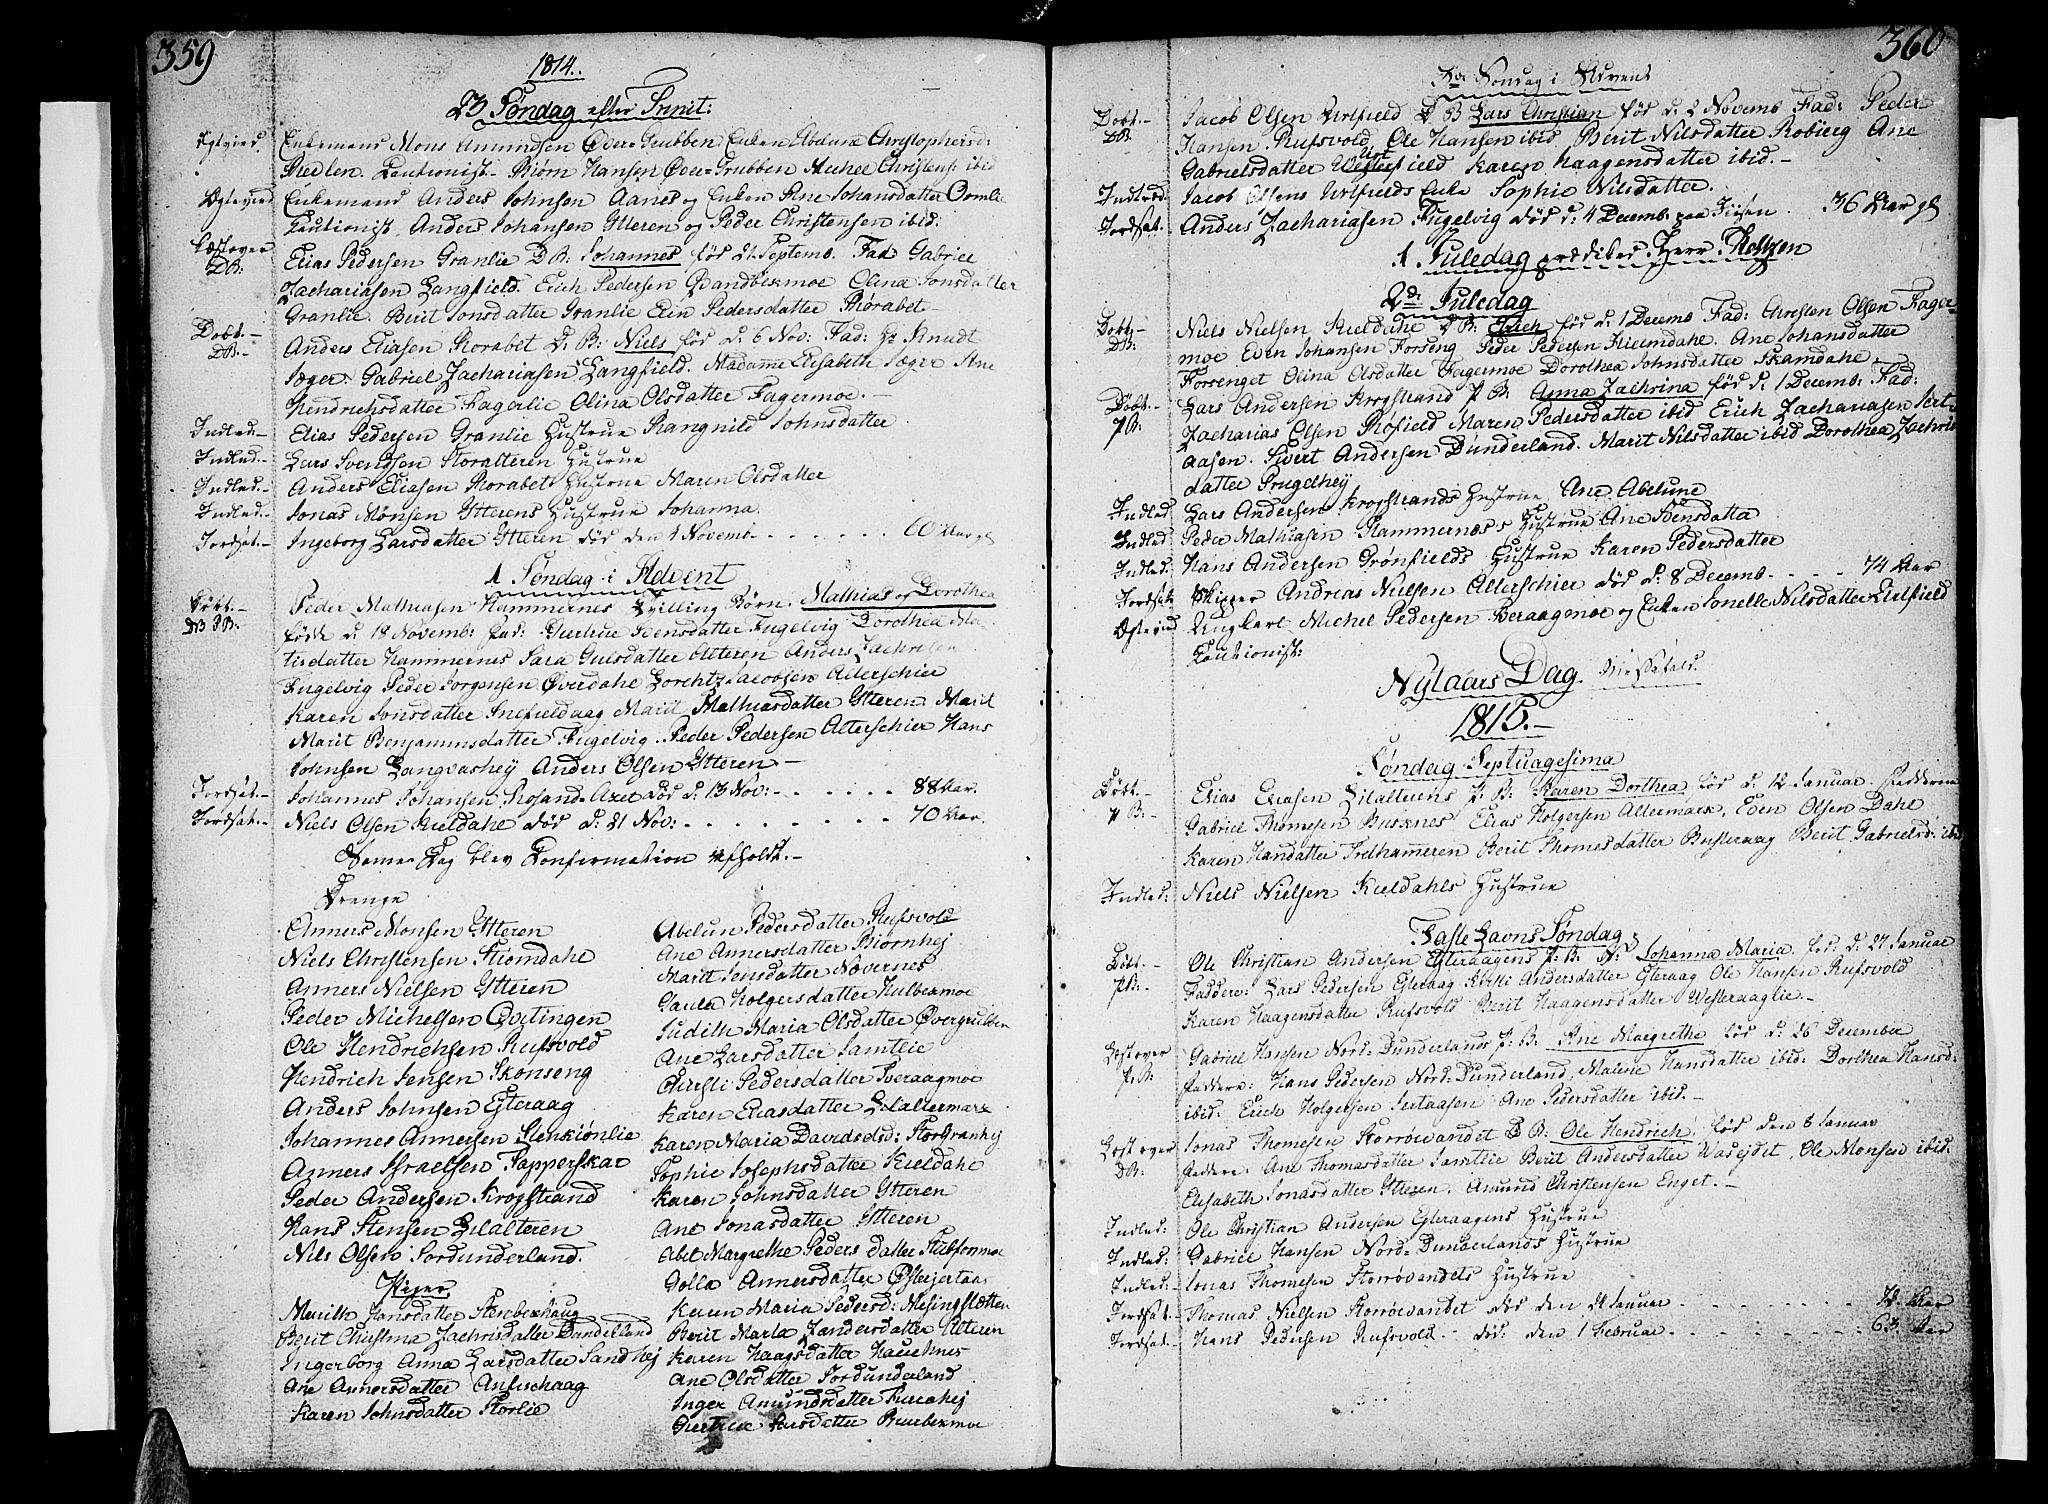 359
1814.
23 Søndag efter Trinit:
Ægtvied. Enkemand Mons Amundsen Øver-Grubben Enken Abelune Christophersd:
Cautionist. Biørn Hansen Øver-Grubben Michel Christens: ibid
Ægtevied Enkemand Anders Johnsen Aanes og Enken Ane Johansdatter Ormlie
Cautionist. Anders Johansen Ytteren og Peder Christensen ibid:
Læst over Elias Pedersen Granlie D B: Johannes fød 21 Septemb. Fad: Gabriel
DB: Zachariasen Langfield. Erich Pedersen Brandbekmoe Olina Jonsdatter
Granlie. Berit Jonsdatter Granlie Elen Pedersdatter Storabet
Døbt.- Anders Eliasen Storabet D: B: Niels fød d: 6 Nov: Fad: Hr Knudt
DB:- Jæger. Gabriel Zachariasen Langfield. Madamme Elisabeth Jæger Ane
Hendrichsdatter Fagerlie Olina Olsdatter Fagermoe.-
Indled.- Elias Pedersen Granlie Hustrue Rangnild Johnsdatter
Indled.- Lars Svendsen Storalteren Hustrue
Indled.- Anders Eliasen Storabet Hustrue Maren Olsdatter
Indled.- Jonas Monsen Ytterens Hustrue Johanna.
Jordsat.- Ingeborg Larsdatter Ytteren død den 4 Novemb. - - - - - 60 Aar gl
1 Søndag i Advent
Døbt.- Peder Mathiasen Hammernes Tvilling Børn. Mathias og Dorothea
DB PB:- fødde d: 18 Novemb: Fad: Giertrue Svensdatter Fugelvig Dorothea Ma-
tisdatter Hammernes Sara Gulsdatter Alteren Anders Zachrisen
Fugelvig Peder Jorgensen Øverdahl Lorentz Jacobsen Alterschier
Karen Jonsdatter Indfieldaag Marit Mathiasdatter Ytteren. Marit
Marit Benjaminsdatter Fugelvig. Peder Pedersen Alterschier Hans
Johnsen Langvashey Anders Olsen Ytteren.-
Jordsat.- Johannes Johansen død d: 13 Nov:- - - - - - 88 Aar.
Jordsat.- Niels Olsen Kieldahl død d: 21 Nov: - - - - - - 70 Aar.
Samme Dag blev Confirmation afholdt.-
Drenge
Anners Monsen Ytteren
Niels Christensen Stiomdahl
Anners Nielsen Ytteren
Peder Michelsen Qvitingen
Ole Hendrichsen Rufsvold
Hendrich Jensen Skonseng
Anders Johnsen Egteraag
Johannes Annersen Stenkiønlie
Anners Israelsen Tapperskar
Peder Andersen Krogstrand
Hans Stensen Lilalteren
Nils Olsen Jordunderland.
Piger
Marith Hansdatter Stenbekhaug
Berit Christina Zachrisdatter Dunderland
Ingerborg Anna Larsdatter Sandhej
Ane Annersdatter
Karen Johnsdatter Storlie
Abelun Pedersdatter Rufsvold
Ane Annersdatter Biørnhej
Marit Jensdatter Nævernes
Paula Holgersdatter Hulbekmoe
Judith Maria Olsdatter Øvergrubben
Ane Larsdatter Jamtlie
Kirsti Pedersdatter Sveraagmoe
Karen Eliasdatter Lilaltermark
Karen Maria Davidsdtr: Storgranhej
Sophie Josephsdatter Kieldahl
Karen Johnsdatter Ytteren
Ane Jonasdatter Ytteren
Abel Margrethe Peders datter Stubsenmoe
Golla Annersdatter
Karen Maria Pedersd: Mesingsletten
Berit Marta Zandersdatter Alteren
Karen Haagsdatter Hauchnes
Ane Olsdatter Jordunderland
Inger Amundsdatter
Giertrue Larsdatter
360
3de Søndag i Advent
Døbt.- Jacob Olsen Urtfield D B Lars Christian fød d: 2 Novemb Fad: Peder
DB. Hansen Rufsvold Ole Hansen ibid Berit Nilsdatter Robierg Ane
Gabrielsdatter Urtfield Karen Haagensdatter ibid.-
Indled. Jacob Olsens Urtfields Enke Sophie Nilsdatter.
Jordsat. Anders Zachariasen Fugelvig død d: 4 Decemb. paa Siisen. 36 Aar gl
1 Juledag prædiked Herr Holtzen
2de Juledag
Døbt- Niels Nielsen Kieldahl D: B: Erich fød d: 1 Decemb Fad: Christen Olsen Fager-
DB: moe Even Johansen Forseng Peder Pedersen Hiemdahl. Ane Johansdatter
Forsenget Olina Olsdatter Fagermoe Dorothea Johnsdatter Skamdahl
Døbt.- Lars Andersen Krogstrand P B: Anna Zachrina fød d: 1 Decemb: Fad:
PB: Zacharias Olsen Røfield Maren Pedersdatter ibid Erich Zachariasen Sert-
aasen. Sivert Andersen Dunderland. Marit Nilsdatter ibid Dorothea Zachris
datter Brugelhey
Indled Lars Andersen Krogstrands Hustrue Ane Abelune
Indled Peder Mathiasen Hammernæss Hustrue Ane Svensdatter
Indled: Hans Andersen Grønfields Hustrue Karen Pedersdatter
Jordsat Skipper Andreas Nielsen Alterschier død d: 8 Decemb.- - - - 74 Aar
Ægtevied Ungkarl Michel Pedersen Sveraagmoe og Enken Sonelle Nilsdatter Urtfield
Cautionist:
Nytaars Dag.
1815.-
Søndag Septuagesima
Døbt.- Elias Eliasen Lilalterens P: B: Karen Dorthea fød d: 12 Januar. Fadderne
P B:- Gabriel Thomesen Busknes, Elias Holgersen Altermark, Even Olsen Dahl
Karen Hansdatter Trelhameren Berit Thomesdatter Busteraag Berit Gabrielsd: ibid
Indled: Niels Nielsen Kieldahls Hustrue
Faste Lavns Søndag
Døbt.- Ole Christian Andersen Egteraagens P: B: N: Johanna Maria. fød: d: 27 Januar
PB:- Faddere: Lars Pedersen Egteraag Kirsti Andersdatter Egteraag Ole Hansen Rufsvold
Karen Haagensdatter Rufsvold Berit Haagensdatter Westeraaglie.-
Læst over Gabriel Hansen Nord-Dunderlands P: B: Ane Margrethe fød d: 26 December
P: B: Faddere: Hans Pedersen Nord-Dunderland, Malene Hansdatter ibid: Dorthea Hansd:
ibid: Erich Holgersen Sertaasen Ane Pedersdatter ibid.-
Læst over Jonas Thomesen Storrøevandet D B: Ole Hendrich: fød den 6 Januar
DB: Faddere: Ane Thomasdatter Jamtlie Berit Andersdatter Wasejdet, Ole Monsen ibid:
Elisabeth Jonasdatter Ytteren. Amund Christensen Enget.-
Indled: Ole Christian Andersen Egteraagens Hustrue
Indled: Gabriel Hansen Nord-Dunderlands Hustrue
Indled: Jonas Thomesen Storrøvandets Hustrue
Jordsat. Thomas Nielsen Storrøevandet død den 21 Januar - - - - - - 72 Aar
Jordsat. Hans Pedersen Rufsvold.- død: den 1 Februar - - - - - - 63 Aar